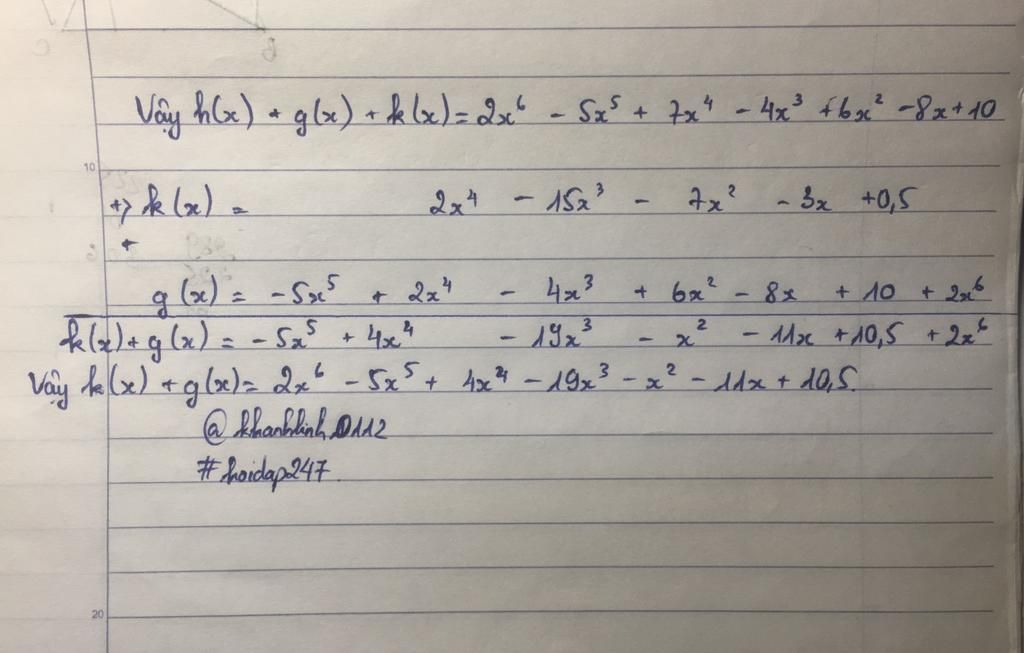 B
C
Vậy h(x) + g(x) + k(x) = 2x⁶ - 5x⁵ + 7x⁴ - 4x³ + 6x² - 8x + 10
10
+) k(x) = 2x⁴ - 15x³ - 7x² - 3x + 0,5
+
g(x) = -5x⁵ + 2x⁴ - 4x³ + 6x² - 8x + 10 + 2x⁶
k(x) + g(x) = -5x⁵ + 4x⁴ - 19x³ - x² - 11x + 10,5 + 2x⁶
Vậy k(x) + g(x) = 2x⁶ - 5x⁵ + 4x⁴ - 19x³ - x² - 11x + 10,5.
@khanhlinh0112
#hoidap247.
20